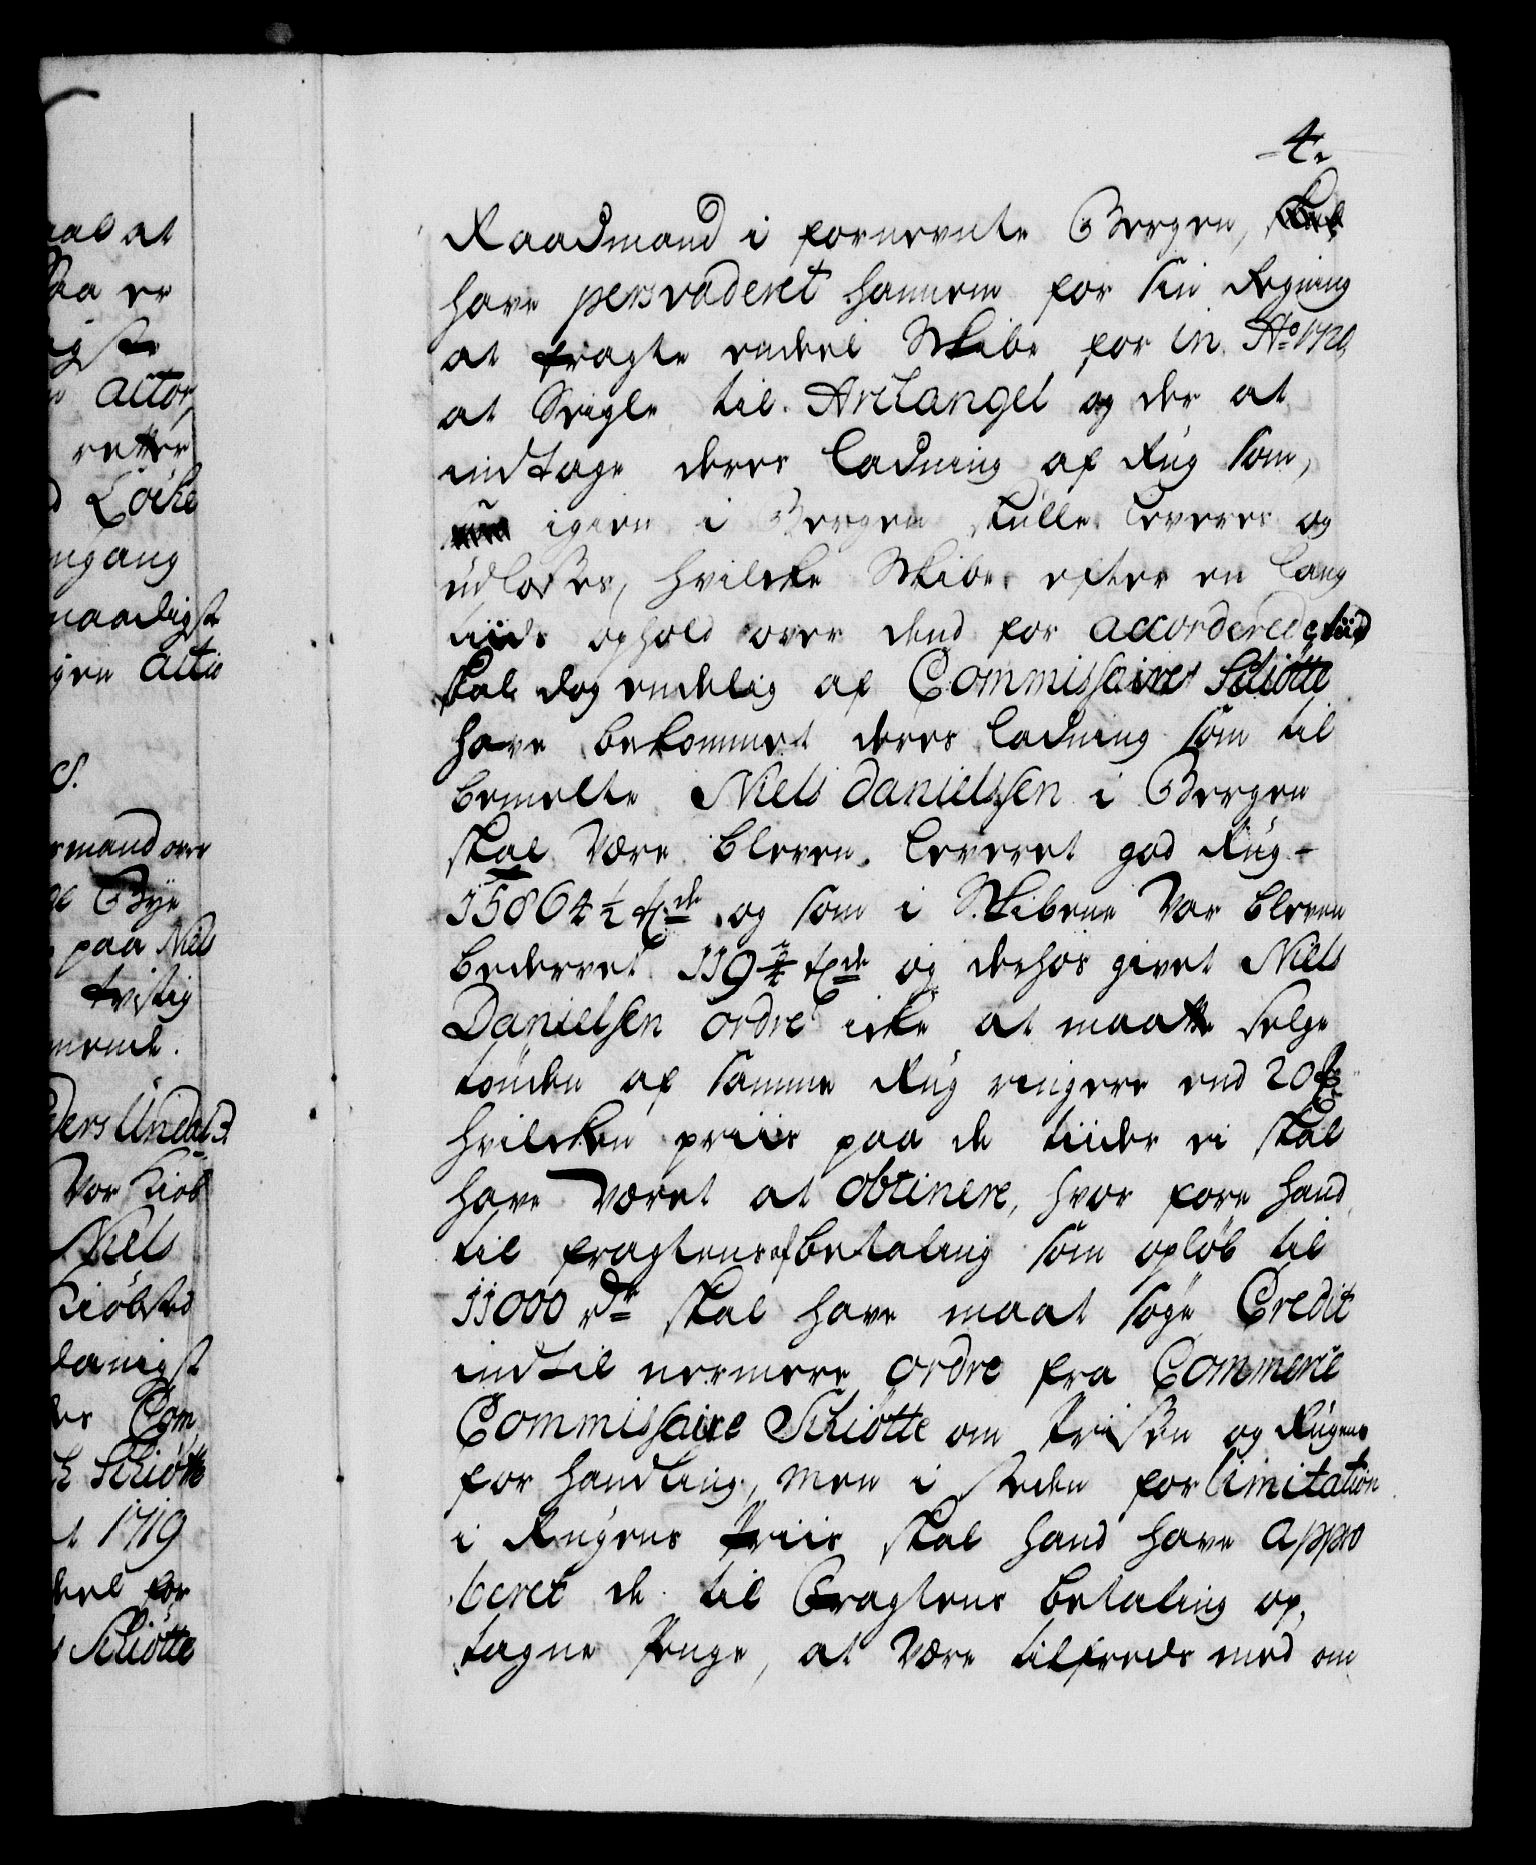 4.
Raadmand i fornevnte Bergen,
have persvaderet hannem for sin Regning
at fragte endeel Skibe for in Ao 1720
at Seigle til Archangel og der at
indtage deres ladning af Rug som,
igien i Bergen skulle leveres og
udlosses, hvilcke Skibe efter en lang
tiids ophold over dend for accorderede tiid
skal dog endelig af Commissaires Schiötte
have bekommet deres ladning som til
bemelte Niels Danielssen i Bergen
skal være bleven leveret god Rug
15864 1/2 tde og som i Skibene var bleven
bedervet 119 3/4 tde og derhos givet Niels
Danielsen ordre icke at maatte selge
tönden af samme Rug ringere end 20
hvilcken priis paa de tiider ei skal
have været at obtinere, hvor fore hand
til fragtens afbetaling som oplöb til
11000 rdr skal have maat söge Credit
indtil nermere ordre fra Commerce
Commissaire Schiötte om Prisen og Rugens
for handling, men i steden for limitation
i Rugens Priis skal hand have appro
beret de til Fragtens betaling op,
tagne Penge, at være tilfreds med om
aal at
saa er
actor,
retter
Löche
ngang
naadigst
gen actio
mand over
Bye
paa Niels
tvistig
ders Undal
vor Kiöb
Niels
Kiöbsted
danigst
Com
Schiötte
1719
deel for
Schiötte